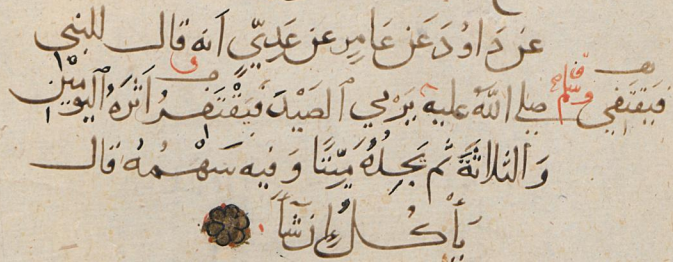 عَن دَاوُدَ عَن عَامِرٍ عن عَدِيٍّ أنه قال للنبي
صلى اللهُ عليه يَرْمي الصَّيْدَ فَيَقْتَفِرُ أَثَرَهُ اليَوْمَيْنِ
فَيَقتَفِي
وَالثلاثةَ ثم يَجِدُهُ مَيِّتًا وَفِيهِ سَهْمُهُ قال
يَأكُلُ إن شَآءَ